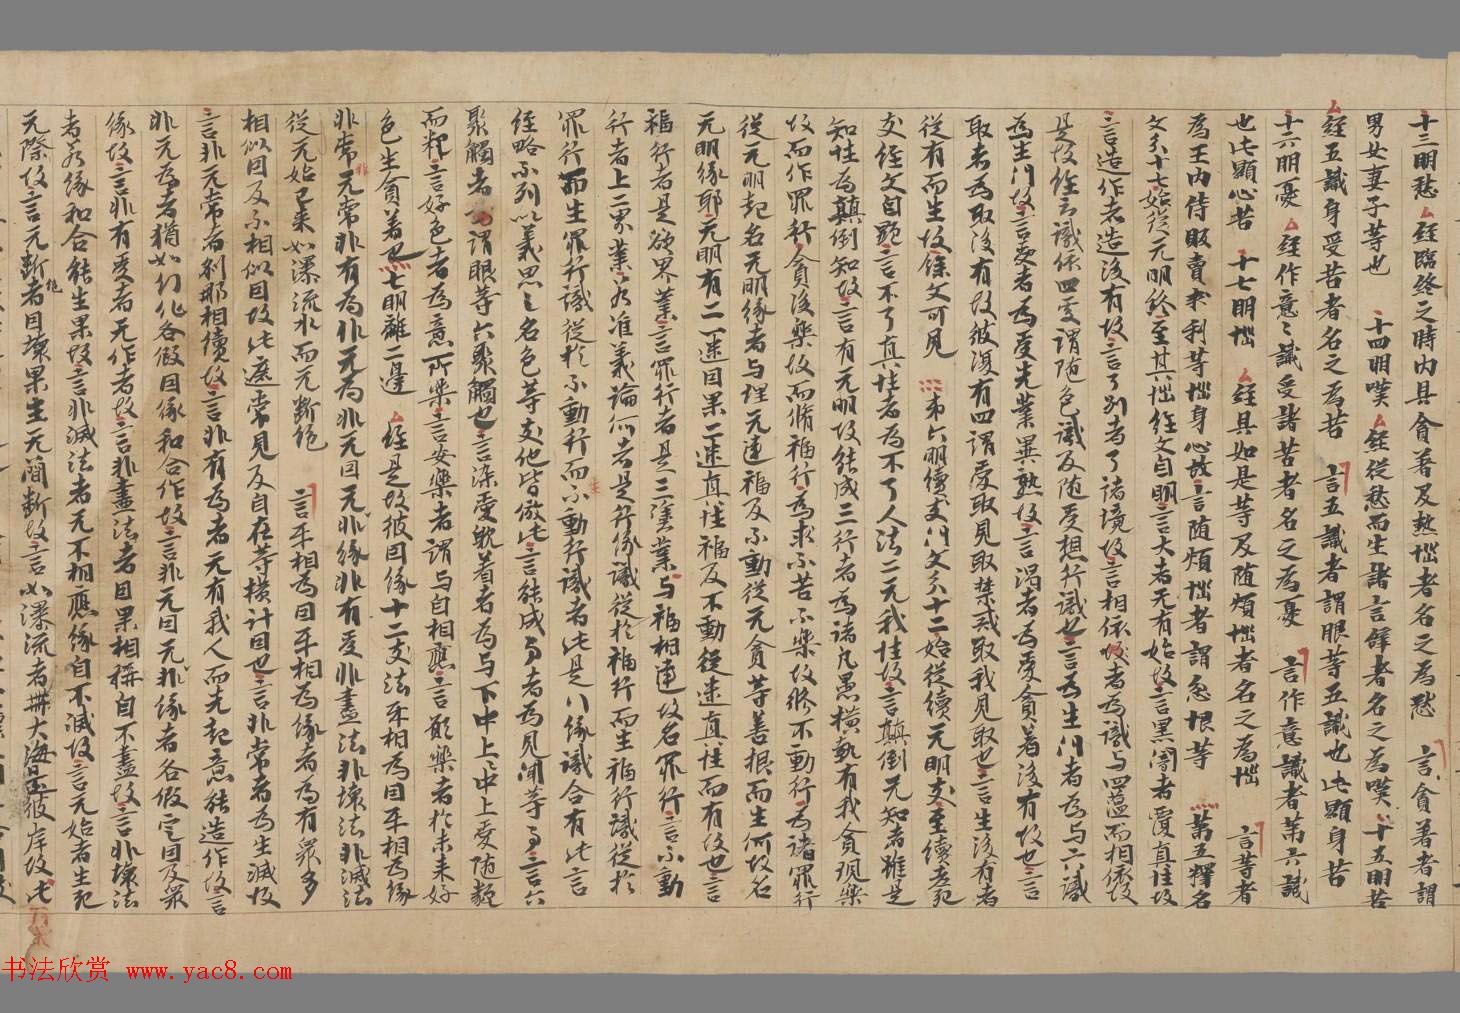 十三明愁 經臨終之時內具貪著及熱惱者名之為愁 言貪著者謂
男女妻子等也 十四明嘆 經從愁而生諸言辭者名之為嘆 十五明苦
經五識身受苦者名之為苦 言五識者謂眼等五識也此顯身苦
十六明憂 經作意意識受諸苦者名之為憂 言作意識者第六識
也此顯心苦 十七明惱 經具如是等及随煩惱者名之為惱 言等者
為王內侍販賣求利等惱身心故言随煩惱者謂忿恨等 第五釋名
文分十七始從无明終至其惱經文自明言大者无有始故言黑闇者覆真性故
言造作者造後有故言了別者了諸境故言相依者為識与四蕴而相依故
是故經云識依四處謂随色識及随受想行識也言為生門者為与六識
為生門故言受者為受先業異熟故言渴者為愛貪著後有故也言
取者為取後有故彼復有四謂愛取見取禁戒取我見取也言生後有者
從有而生故餘文可見 第六明續支門文分十二始從續无明支至續老死
支經文自顯言不了真性者為不了人法二无我性故言顛倒无知者雖是
知性為顛倒知故言有无明故能成三行者為諸凡愚橫執有我貪現樂
故而作罪行貪後樂故而脩福行為求不苦不樂故脩不動行為諸罪行
從无明起名无明緣者与理无違福及不動從无貪等善根而生何故名
无明緣耶无明有二一迷因果二迷真性福及不動從迷真性而有故也言
福行者是欲界業言罪行者是三塗業与福相違故名罪行言不動
行者上二界業若准義論何者是行緣識從於福行而生福行識從於
罪行而生罪行識從於不動行而不動行識者此是行緣識合有此言
經略不列以義思之名色等支他皆倣此言能成事者為見聞等事言六
聚觸者謂眼等六聚觸也言染愛躭著者為与下中上上中上受随類
而釋言好色者為意所樂言安樂者謂与自相應言願樂者於未來好
色生貪著也 七明離二邊 經是故彼因緣十二支法互相為因互相為緣
非常无常非有為非无為非无因无非緣非有受非盡法非壞法非滅法
從无始已來如瀑流水而无斷絕 言互相為因互相為緣者為有眾多
相似因及不相似因故此遮常見及自在等橫計因也言非常者為生滅故
言非无常者剎那相續故言非有為者无有我人而先起意能造作故言
非无為者猶如幻化各假因緣和合作故言非无因无非緣者各假定因及眾
緣故言非有受者无作者故言非盡法者因果相稱自不盡故言非壞法
者若緣和合能生果故言非滅法者无不相應緣自不滅故言无始者生死
无際故言无斷絕者因壞果生无間斷故言如瀑流者無大海至彼岸故此
书法欣赏 www.yac8.com